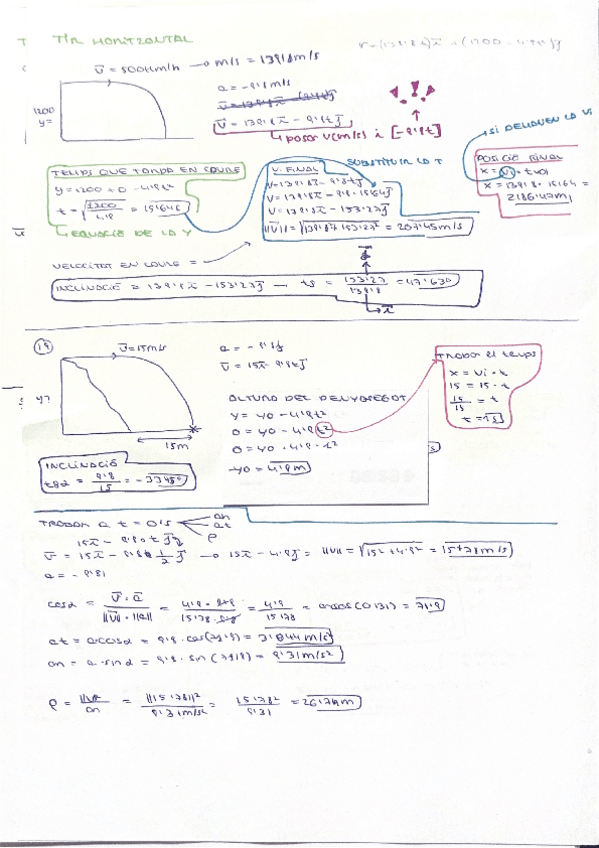 TIR HORITZONTAL
v = 500 km/h → m/s = 138'8 m/s
1200
y=
a = -9'8 m/s
v = 138'8i - 9'8tj
v = 138'8i - 9'8tj
→ posar v(m/s) i [-9'8t]
TEMPS QUE TARDA EN CAURE
y = 1200 + 0 - 4'9t²
t = √1200/4'9 = 15'64s
EQUACIÓ DE LA Y
SUBSTITUIR LA T
V. FINAL
v = 138'8i - 9'8tj
v = 138'8i - 9'8 · 15'64j
v = 138'8i - 153'27j
||v|| = √138'8² 153'27² = 207'45 m/s
SI DEMANEN LA Vi
POSICIÓ FINAL
x = Vi · t
x = 138'8 · 15'64 =
VELOCITAT EN CAURE =
INCLINACIÓ = 138'8i - 153'27j — tg = 153'27/138'8 = 47'63°
j
i
19
v = 15 m/s
y?
15m
a = -9'8j
v = 15i - 9'8tj
y = y0 - 4'9t²
0 = y0 - 4'9t²
0 = y0 - 4'9 · 1²
-y0 = 4'9m
TROBAR el temps
x = vi · t
15 = 15 · t
15/15 = t
t = 1s
INCLINACIÓ
tg α = 9'8/15 = -33'45°
TROBAR a t = 0'5
an
at
ρ
15i - 9'8 · tj
v = 15i - 9'8 · 1/2 j → 15i - 4'9j = ||v|| = √15² + 4'9² = 15'78 m/s
a = -9'81
cos α = v · a / ||v|| · ||a|| = 4'9 · 9'8 / 15'78 · 9'8 = 4'9/15'78 = arccos(0'31) = 71'9
at = a cos α = 9'8 · cos(71'9) = 3'044 m/s²
an = a · sin α = 9'8 · sin(71'9) = 9'31 m/s²
ρ = ||v||²/an = ||15'78||²/9'31 m/s² = 15'78²/9'31 = 26'74m